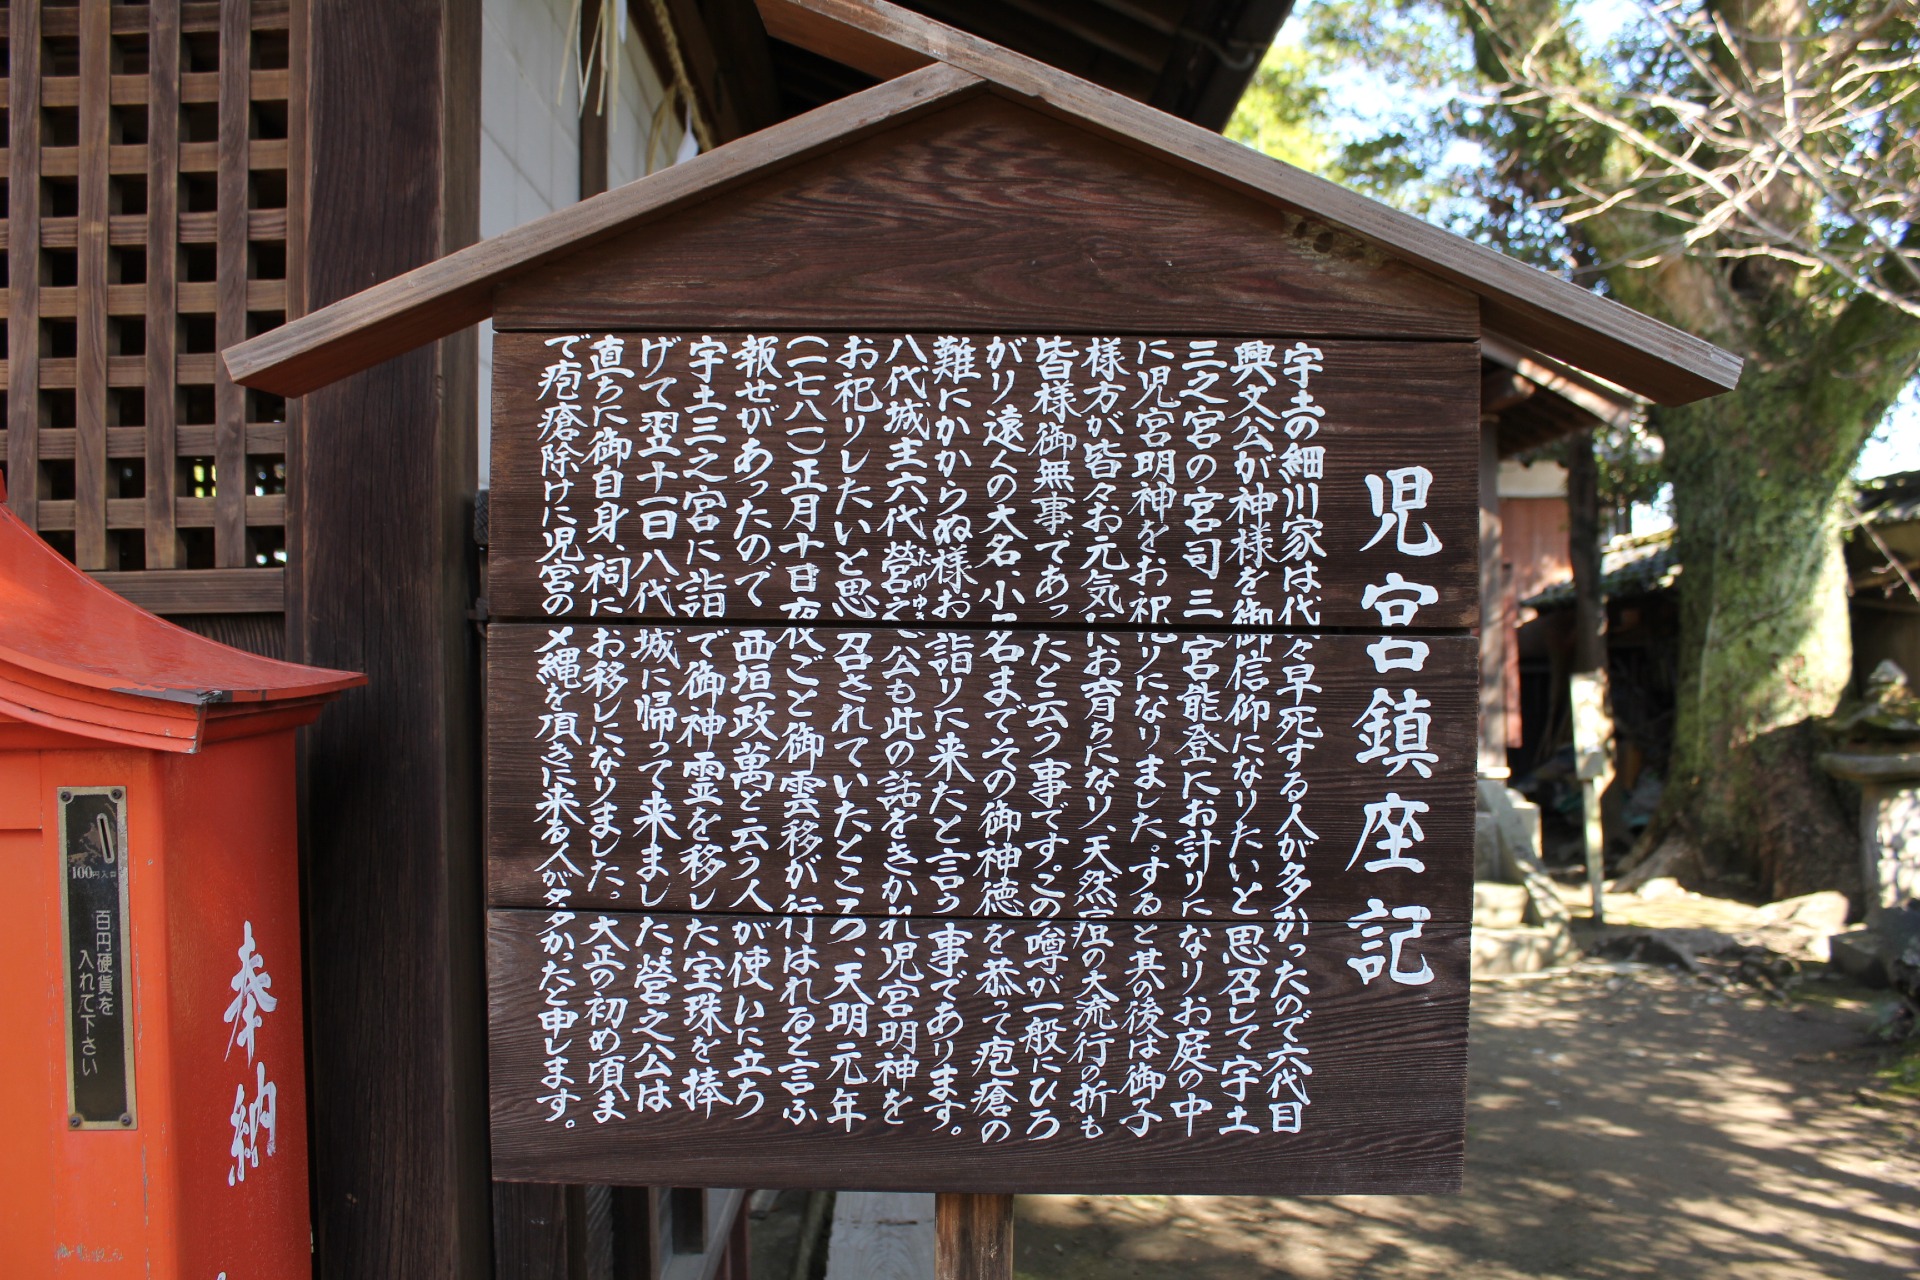 児宮鎮座記
宇土の細川家は代々早死する人が多かったので六代目
興文公が神様を御信仰になりたいと思召して宇土
三之宮の宮司三宮能登にお計りになりお庭の中
に児宮明神をお祀りになりました。すると其の後は御子
様方が皆々お元気にお育ちになり、天然痘の大流行の折も
皆様御無事であったと云う事です。この噂が一般にひろ
がり遠くの大名、小名までその御神徳を恭って疱瘡の
難にかからぬ様お詣りに来たと言う事であります。
八代城主六代營之公も此の話をきかれ児宮明神を
ためゆき
お祀りしたいと思召されていたところ、天明元年
(一七八一)正月十日夜ごと御雲移が行はれると言ふ
報せがあったので西垣政萬と云う人が使いに立ち
宇土三之宮に詣で御神霊を移した宝珠を捧
げて翌十一日八代城に帰って来ました。營之公は
直ちに御自身、祠にお移しになりました。大正の初め頃ま
で疱瘡除けに児宮の〆縄を頂きに来る人が多かったと申します。
奉納
100円入口
百円硬貨を
入れて下さい